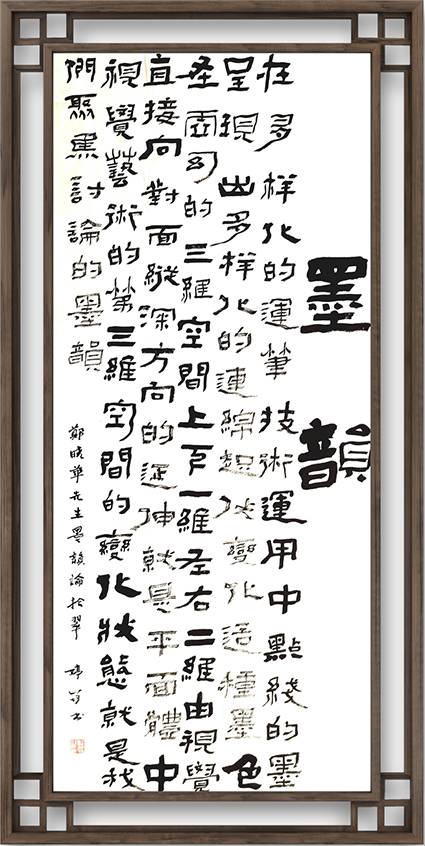 墨韻
在多樣化的運筆技術運用中點綫的墨
呈現出多樣化的連綿起伏變化這種墨色
幻的三維空間上下一維左右二維由視覺
直接向對面縱深方向的延伸就是平面體中
視覺藝術的第三維空間的變化狀態就是我
們聚焦討論的墨韻
鄭曉華先生墨韻論拾翠